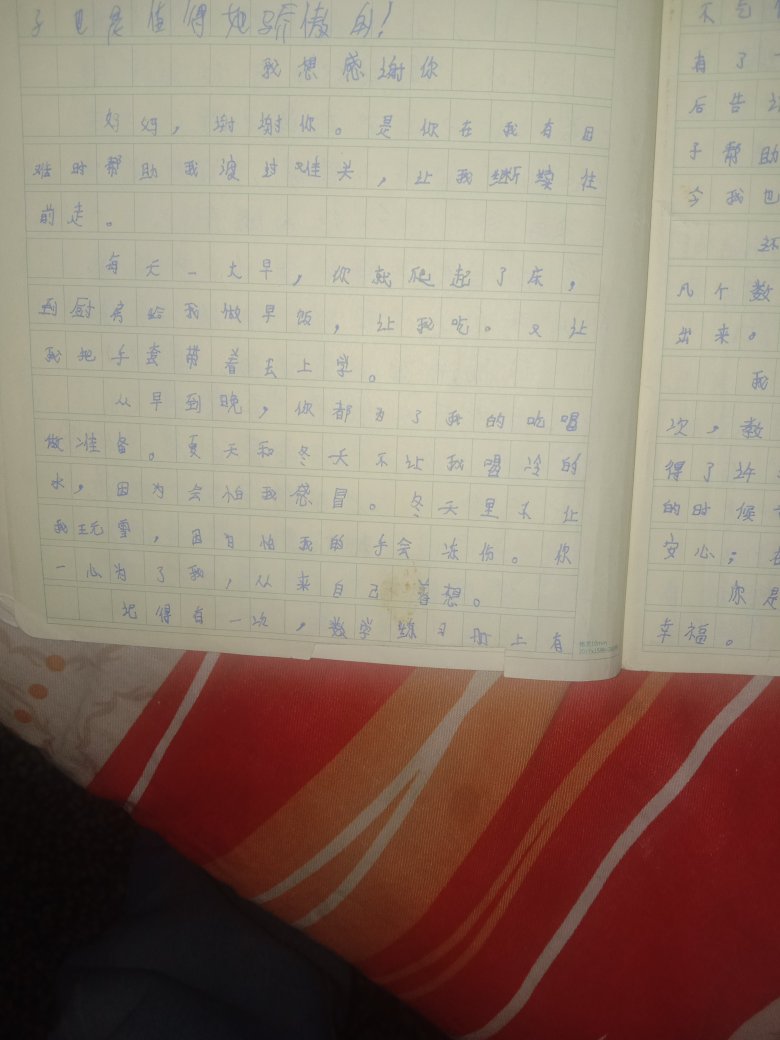 子也是值得她骄傲的！
我想感谢你
妈妈，谢谢你。是你在我有困
难时帮助我渡过难关，让我继续往
前走。
每天一大早，你就爬起了床，
到厨房给我做早饭，让我吃。又让
我把手套带着去上学。
从早到晚，你都为了我的吃唱
做准备。夏天和冬天不让我唱冷的
水，因为会怕我感冒。冬天里不让
我玩雪，因为怕我的手会冻伤。你
一心为了我，从来自己着想。
记得有一次，数学练习册上有
不
有了一
后告
子帮助
今我也
还
几个数
出来。
我
次，教
得了许
的时候
安心；
你是
幸福。